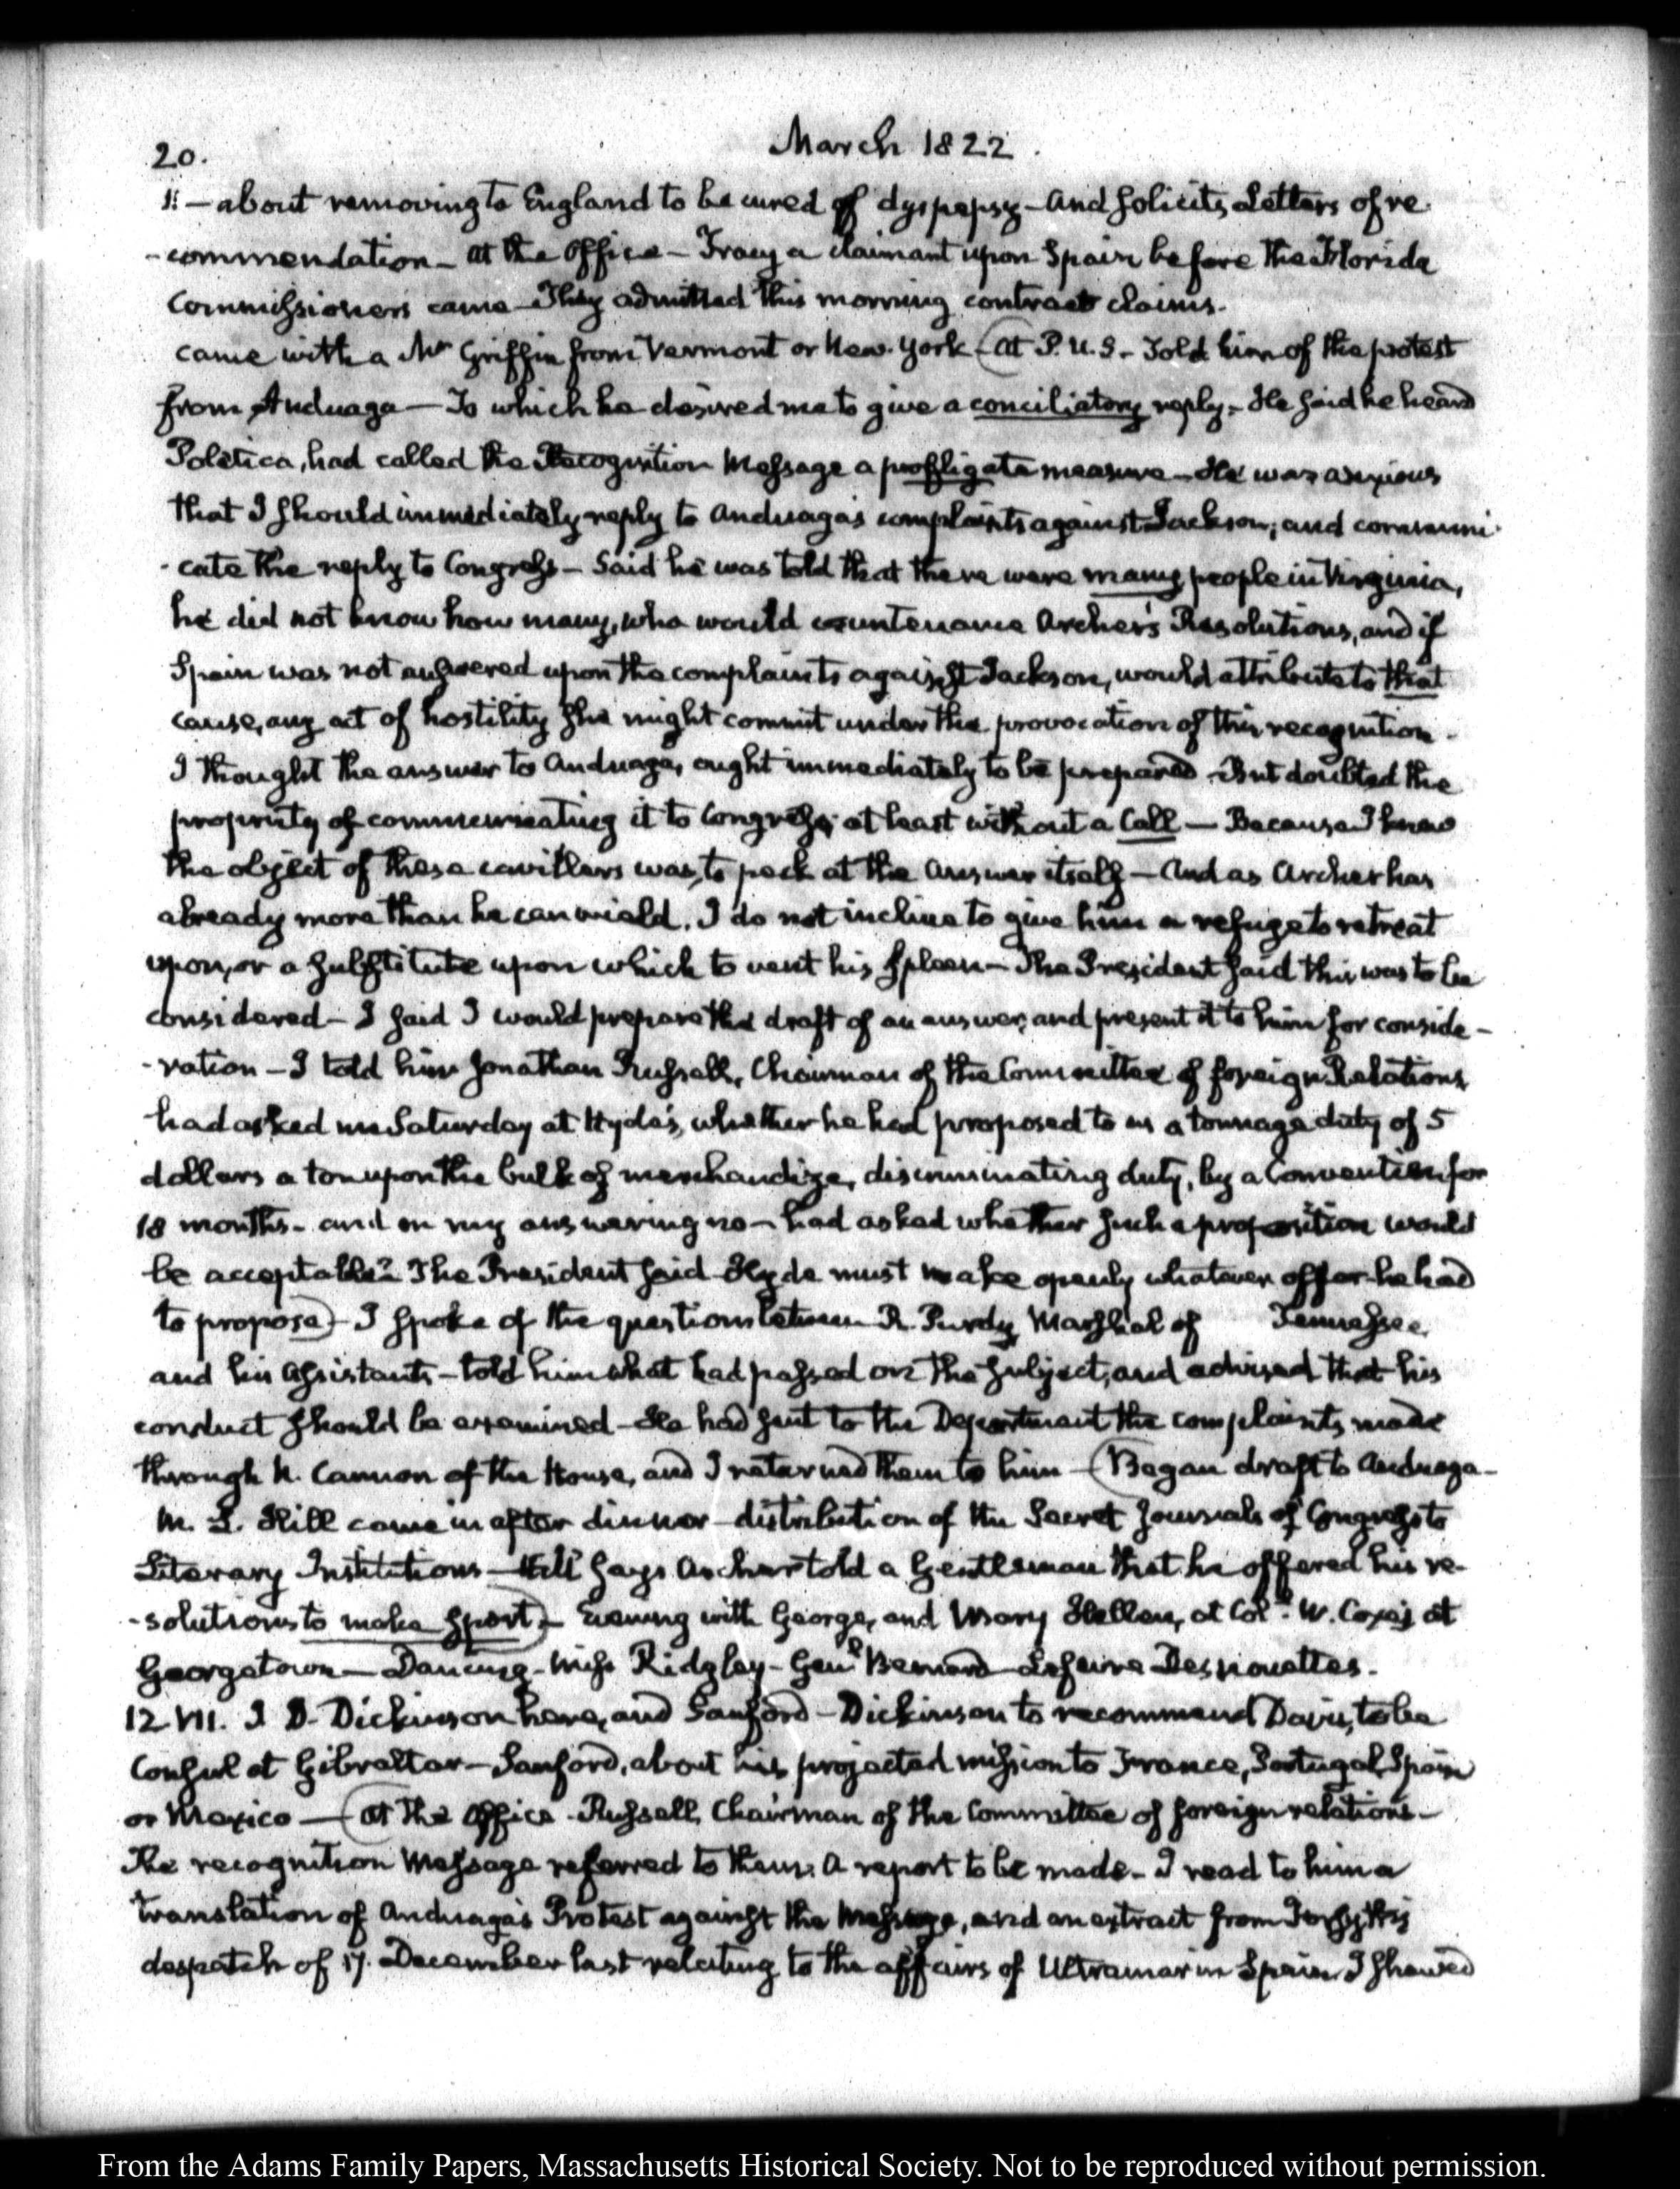 20.
March 1822.
11. — about removing to England to be cured of dyspepsy — and solicits Letters of re-
-commendation — at the Office — Tracy a claimant upon Spain before the Florida
Commissioners came — They admitted this morning contract claims.
came with a Mr Griffin from Vermont or New-York — (at P. U. S. — Told him of the protest
from Anduaga — To which he desired me to give a conciliatory reply. — He said he heard
Poletica, had called the Recognition Message a profligate measure — He was anxious
that I should immediately reply to Anduaga's complaints against Jackson, and communi-
-cate the reply to Congress — Said he was told that there were many people in Virginia,
he did not know how many, who would countenance Archer's Resolutions, and if
Spain was not answered upon the complaints against Jackson, would attribute to that
cause, any act of hostility she might commit under the provocation of this recognition —
I thought the answer to Anduaga, ought immediately to be prepared. But doubted the
propriety of communicating it to Congress; at least without a Call — Because I knew
the object of these cavillers was, to peck at the answer itself — And as Archer has
already more than he can wield, I do not incline to give him a refuge to retreat
upon, or a substitute upon which to vent his spleen — The President said this was to be
considered — I said I would prepare the draft of an answer, and present it to him for conside-
-ration — I told him Jonathan Russell, Chairman of the Committee of foreign Relations
had asked me Saturday at Hyde's, whether he had proposed to us a tonnage duty of 5
dollars a ton upon the bulk of merchandize, discriminating duty, by a Convention for
18 months — and on my answering no — had asked whether such a proposition would
be acceptable? The President said Hyde must make openly whatever offer he had
to propose) — I spoke of the question between R. Purdy Marshal of Tennessee
and his Assistants — told him what had passed on the subject, and advised that his
conduct should be examined — He had sent to the Department the complaints made
through N. Cannon of the House, and I returned them to him — (Began draft to Anduaga —
M. L. Hill came in after dinner — distribution of the Secret Journals of Congress to
Literary Institutions — Hill says Archer told a Gentleman that he offered his re-
-solutions to make sport) — Evening with George, and Mary Hellen, at Col. W. Cox's at
Georgetown — Dancing — Miss Ridgley — Genl Bernard — Lefevre Desnouettes.
12. VII. J D. Dickinson here, and Sanford — Dickinson to recommend Davis, to be
Consul at Gibraltar — Sanford, about his projected mission to France, Portugal, Spain
or Mexico — (at the Office — Russell, Chairman of the Committee of foreign relations —
The recognition Message referred to them: A report to be made — I read to him a
translation of Anduaga's Protest against the Message, and an extract from Forsyth's
despatch of 17. December last relating to the affairs of Ultramar in Spain. I shewed
From the Adams Family Papers, Massachusetts Historical Society. Not to be reproduced without permission.